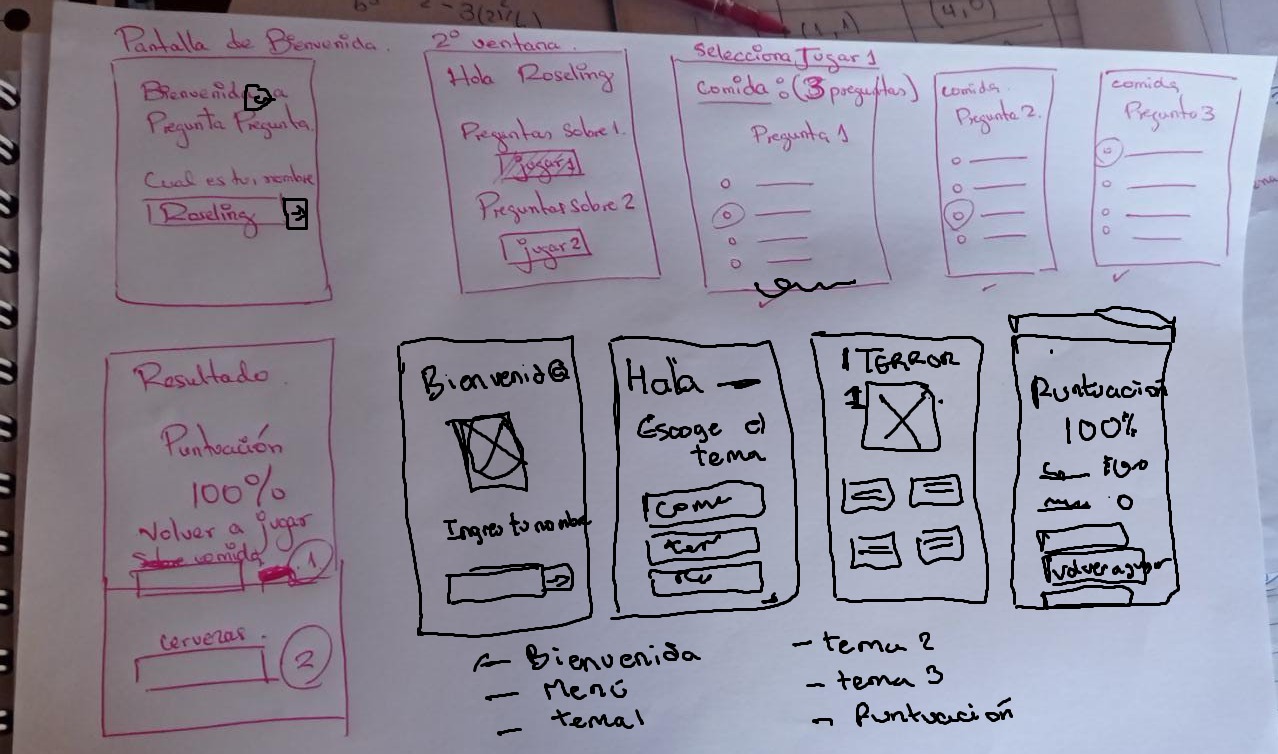 Pantalla de Bienvenida.
Bienvenid@ a
Pregunta Pregunta.
Cual es tu nombre
Roseling
2º ventana
Hola Roseling
Preguntas sobre 1.
jugar 1
Preguntas sobre 2
jugar 2
Selecciona Jugar 1
Comida : (3 preguntas)
Pregunta 1
comida.
Pregunta 2.
comida
Pregunta 3
Resultado
Puntuación
100%
Volver a jugar
sobre comida
1
cervezas.
2
Bienvenid@
Ingres tu nombre
Hola
Escoge el
tema
come
ter
TERROR
1
Puntuación
100%
100
0
volver a jugar
- Bienvenida
- Menú
- tema 1
- tema 2
- tema 3
- Puntuación
(1,1)
(4,0)